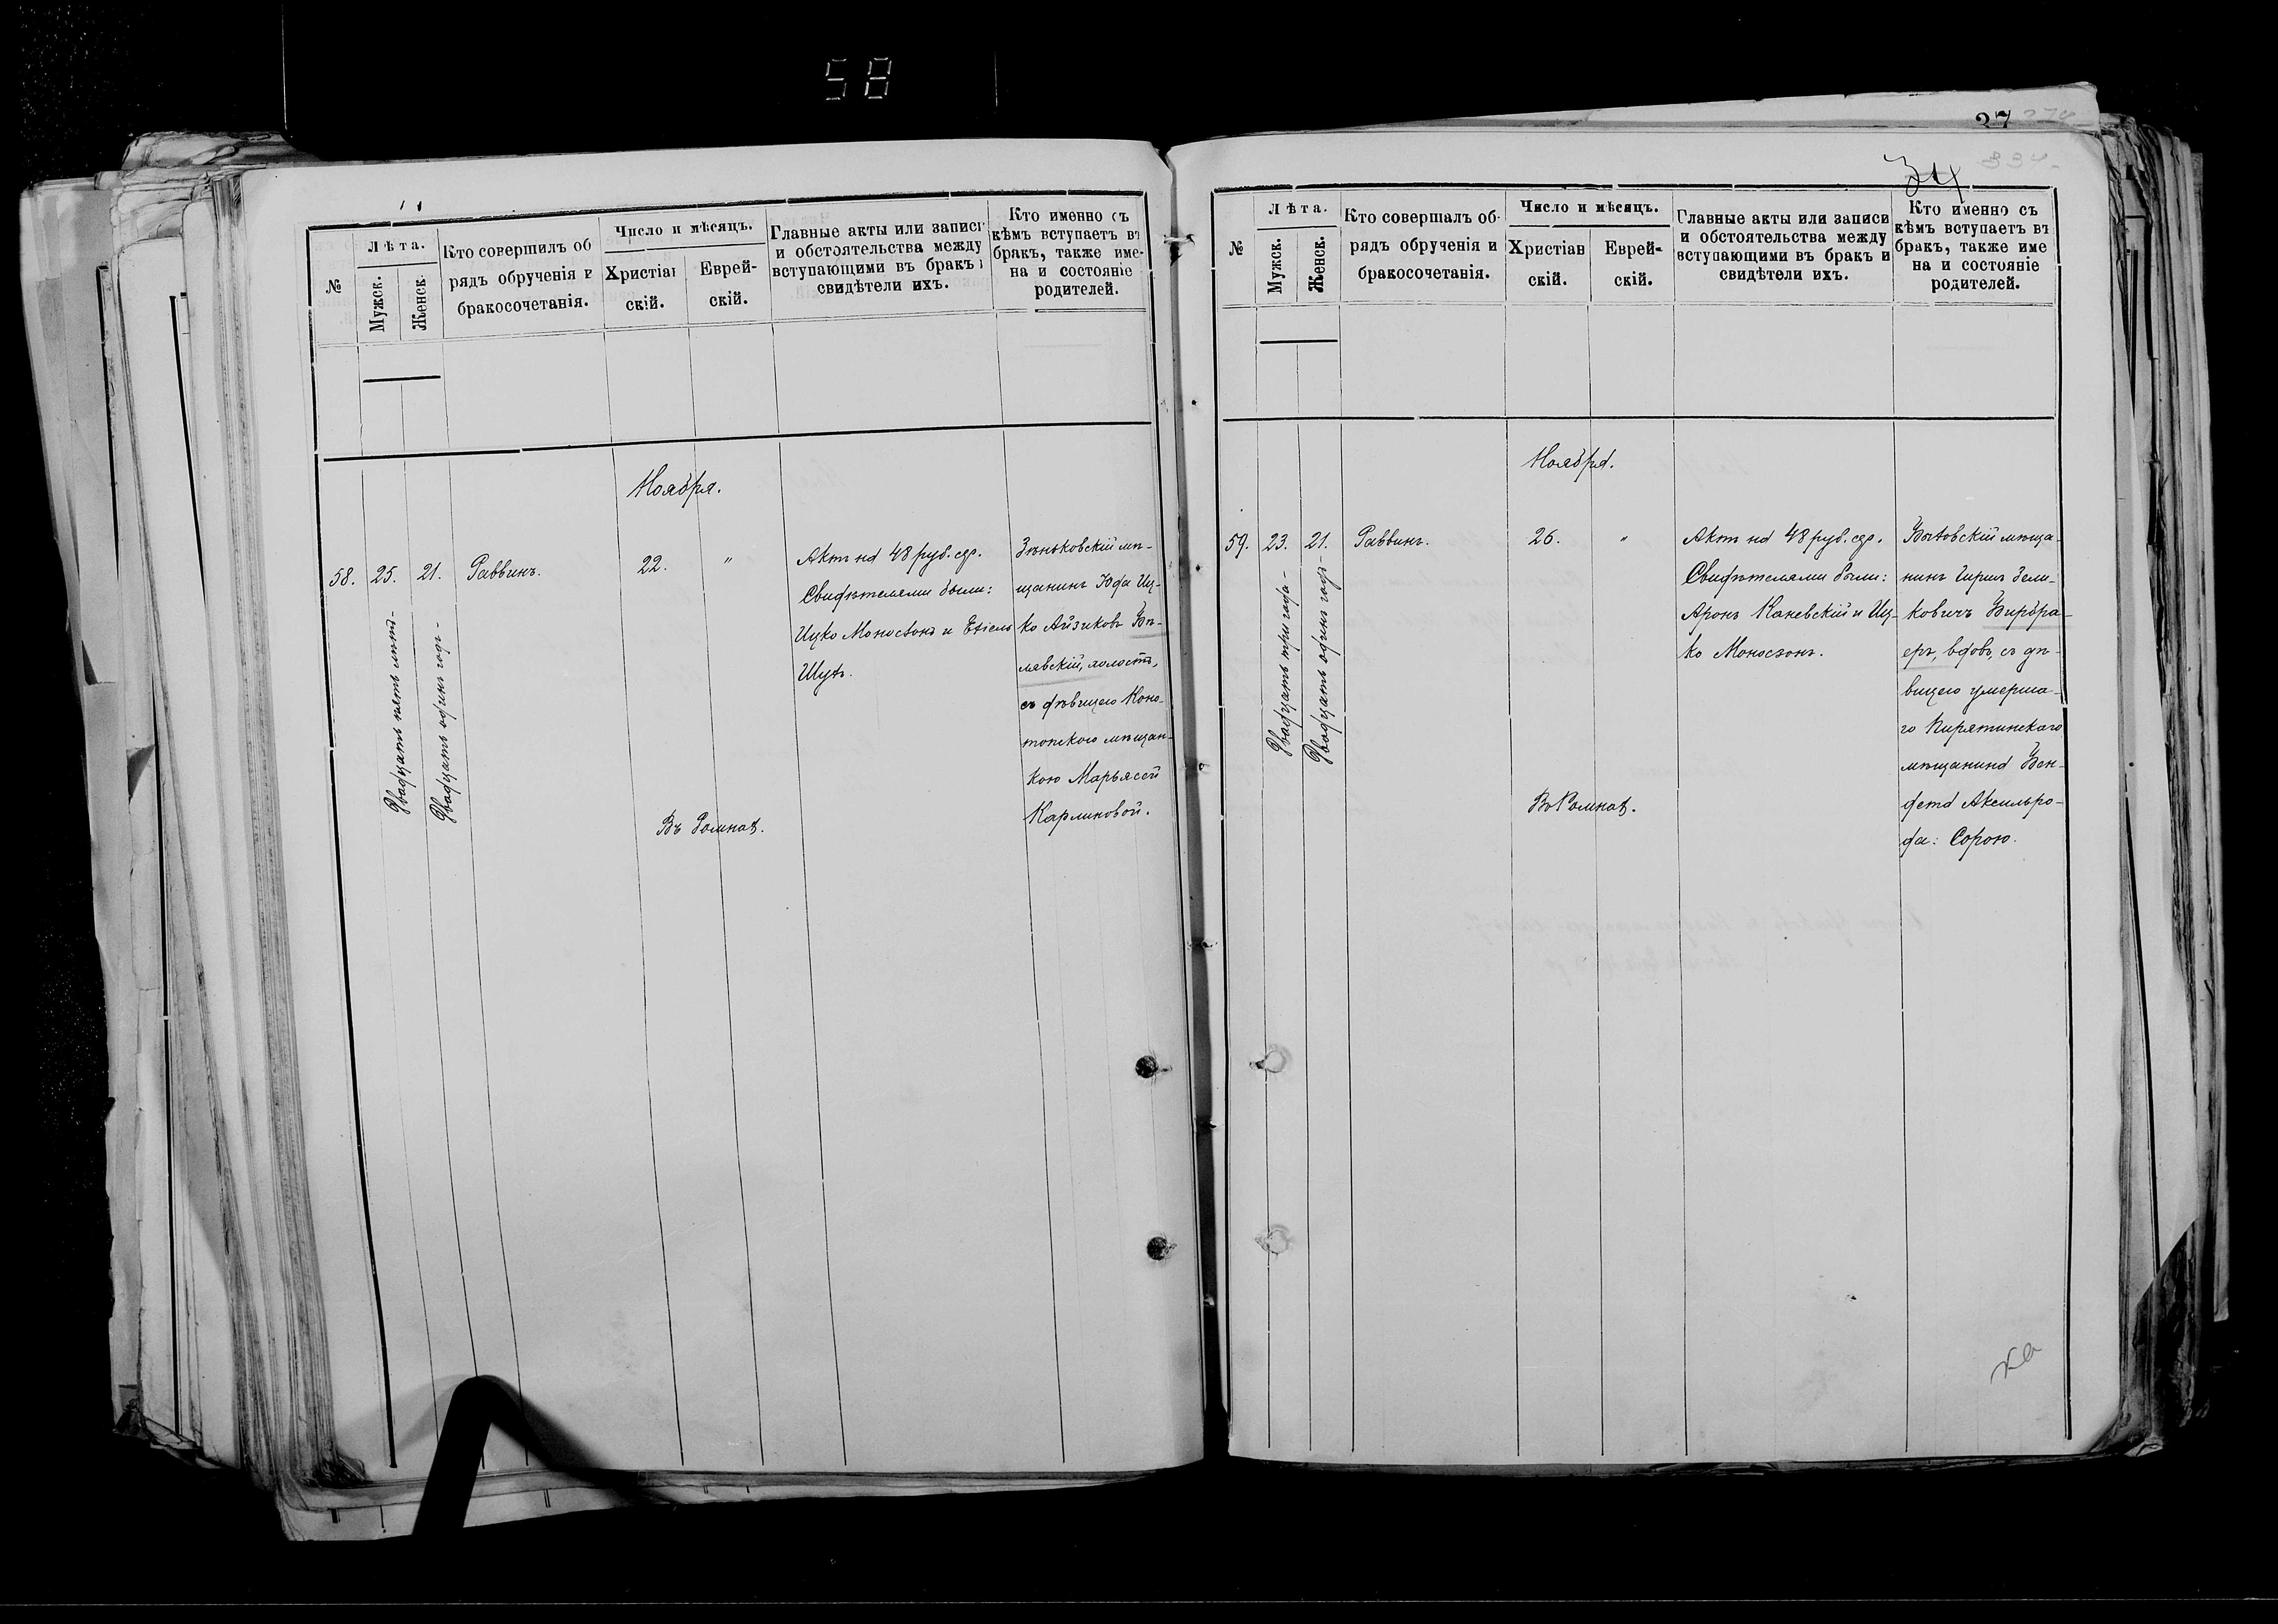 58
37
34
334
№
Лѣта.
Мужск.
Женск.
Кто совершилъ об
рядъ обрученія и
бракосочетанія.
Число и мѣсяцъ.
Христіан
скій.
Еврей-
скій.
Главные акты или записи
и обстоятельства между
вступающими въ бракъ и
свидѣтели ихъ.
Кто именно съ
кѣмъ вступаетъ въ
бракъ, также име-
на и состояніе
родителей.
Ноября.
58.
25.
Двадцать пять лѣтъ
21.
Двадцать одинъ годъ
Раввинъ.
22.
"
Въ Ромнах.
Актъ на 48 руб. сер.
Свидѣтелями были:
Ицко Моносзонъ и
Шуб.
Зѣньковскій мѣ-
щанинъ Юда Иц-
ко Айзиковъ Бѣ-
лявскій, холостъ,
съ дѣвицею Коно-
топскою мѣщан-
кою Марьясей
Карликовой.
№
Лѣта.
Мужск.
Женск.
Кто совершалъ об-
рядъ обрученія и
бракосочетанія.
Число и мѣсяцъ.
Христіан
скій.
Еврей-
скій.
Главные акты или записи
и обстоятельства между
вступающими въ бракъ и
свидѣтели ихъ.
Кто именно съ
кѣмъ вступаетъ въ
бракъ, также име
на и состояніе
родителей.
Ноября.
59.
23.
Двадцать три года
21.
Двадцать одинъ годъ
Раввинъ.
26.
"
Въ Ромнах.
Актъ на 48 руб. сер.
Свидѣтелями были:
Аронъ Каневскій и Иц-
ко Моносзонъ.
Быховскій мѣща-
нинъ Гиршъ Зели-
ковичъ Бирбра-
еръ, вдовъ, съ дѣ-
вицею умерша-
го Пирятинскаго
мѣщанина Бен-
дета Аксельро-
да: Сорою.